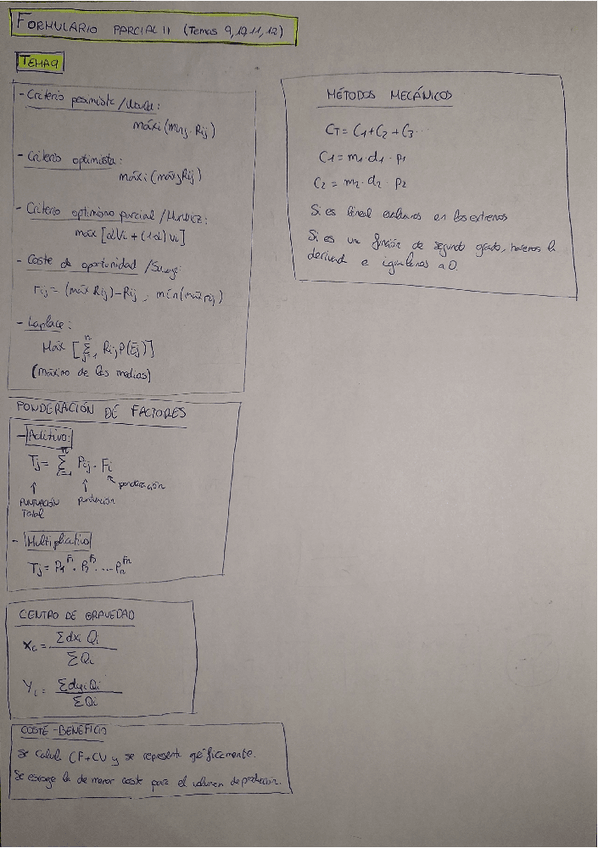 FORMULARIO PARCIAL II (Temas 9, 10, 11, 12)
TEMA 9
- Criterio pesimista / Wald:
máxi (mínj Rij)
- Criterio optimista:
máxi (máxj Rij)
- Criterio optimismo parcial / Hurwicz:
máx [αVi + (1-α) vi]
- Coste de oportunidad / Savage:
rij = (máx Rij) - Rij , mín (máx rij)
- Laplace:
Máx [Σ Rij P(Ej)]
(máximo de las medias)
PONDERACIÓN DE FACTORES
- Aditivo:
Tj = Σ Pij · Fi
ponderación
PUNTUACIÓN TOTAL
puntuación
- Multiplicativo
Tj = P1^F1 · P2^F2 · ... Pn^Fn
CENTRO DE GRAVEDAD
Xc = Σdxi Qi / ΣQi
Yc = Σdyi Qi / ΣQi
COSTE - BENEFICIO
Se calcula CF+CV y se representa gráficamente.
Se escoge la de menor coste para el volumen de producción.
MÉTODOS MECÁNICOS
CT = C1 + C2 + C3...
C1 = m1 · d1 · p1
C2 = m2 · d2 p2
Si es lineal evaluamos en los extremos
Si es una función de segundo grado, hacemos la
derivada e igualamos a 0.